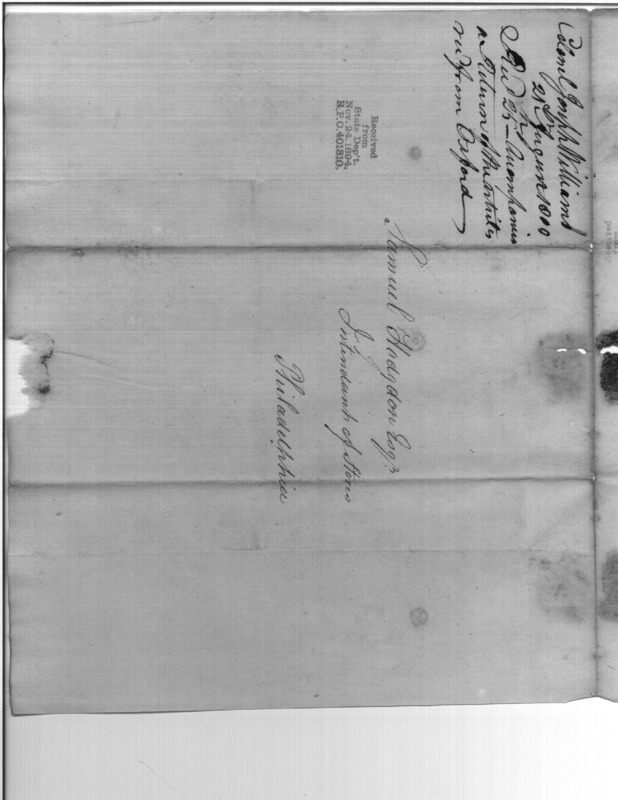 Colonl Joseph Williams
21st August 1800
Recd 25th Accompanies
a Return of the Articles
recd from Oxford
Received
from
State Dep't.
Nov. 24, 1894.
R.P.O. 401810.
Samuel Hodgdon Esqr.
Intendant of Stores
Philadelphia